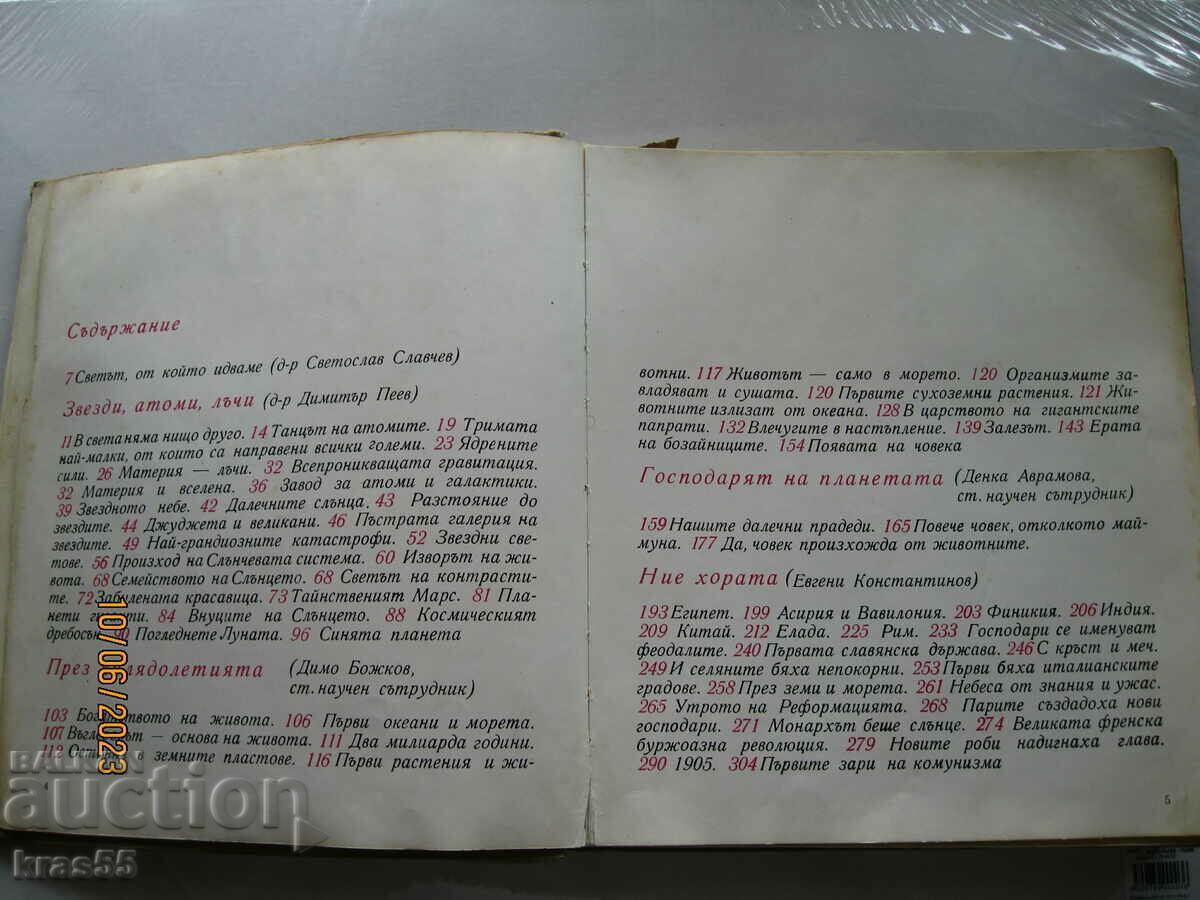 Съдържание
7 Светът, от който идваме (д-р Светослав Славчев)
Звезди, атоми, лъчи (д-р Димитър Пеев)
11 В света няма нищо друго. 14 Танцът на атомите. 19 Тримата
най-малки, от които са направени всички големи. 23 Ядрените
сили. 26 Материя — лъчи. 32 Всепроникващата гравитация.
32 Материя и вселена. 36 Завод за атоми и галактики.
39 Звездното небе. 42 Далечните слънца. 43 Разстояние до
звездите. 44 Джуджета и великани. 46 Пъстрата галерия на
звездите. 49 Най-грандиозните катастрофи. 52 Звездни све-
тове. 56 Произход на Слънчевата система. 60 Изворът на жи-
вота. 68 Семейството на Слънцето. 68 Светът на контрасти-
те. 72 Забулената красавица. 73 Тайнственият Марс. 81 Пла-
нети 84 Внуците на Слънцето. 88 Космическият
дребосък. 90 Погледнете Луната. 96 Синята планета
През (Димо Божков,
ст. научен сътрудник)
103 на живота. 106 Първи океани и морета.
107 — основа на живота. 111 Два милиарда години.
112 в земните пластове. 116 Първи растения и жи-
вотни. 117 Животът — само в морето. 120 Организмите за-
владяват и сушата. 120 Първите сухоземни растения. 121 Жи-
вотните излизат от океана. 128 В царството на гигантските
папрати. 132 Влечугите в настъпление. 139 Залезът. 143 Ерата
на бозайниците. 154 Появата на човека
Господарят на планетата (Денка Аврамова,
ст. научен сътрудник)
159 Нашите далечни прадеди. 165 Повече човек, отколкото май-
муна. 177 Да, човек произхожда от животните.
Ние хората (Евгени Константинов)
193 Египет. 199 Асирия и Вавилония. 203 Финикия. 206 Индия.
209 Китай. 212 Елада. 225 Рим. 233 Господари се именуват
феодалите. 240 Първата славянска държава. 246 С кръст и меч.
249 И селяните бяха непокорни. 253 Първи бяха италианските
градове. 258 През земи и морета. 261 Небеса от знания и ужас.
265 Утрото на Реформацията. 268 Парите създадоха нови
господари. 271 Монархът беше слънце. 274 Великата френска
буржоазна революция. 279 Новите роби надигнаха глава.
290 1905. 304 Първите зари на комунизма
5
10/06/2023
BALKAN
auction
kras55